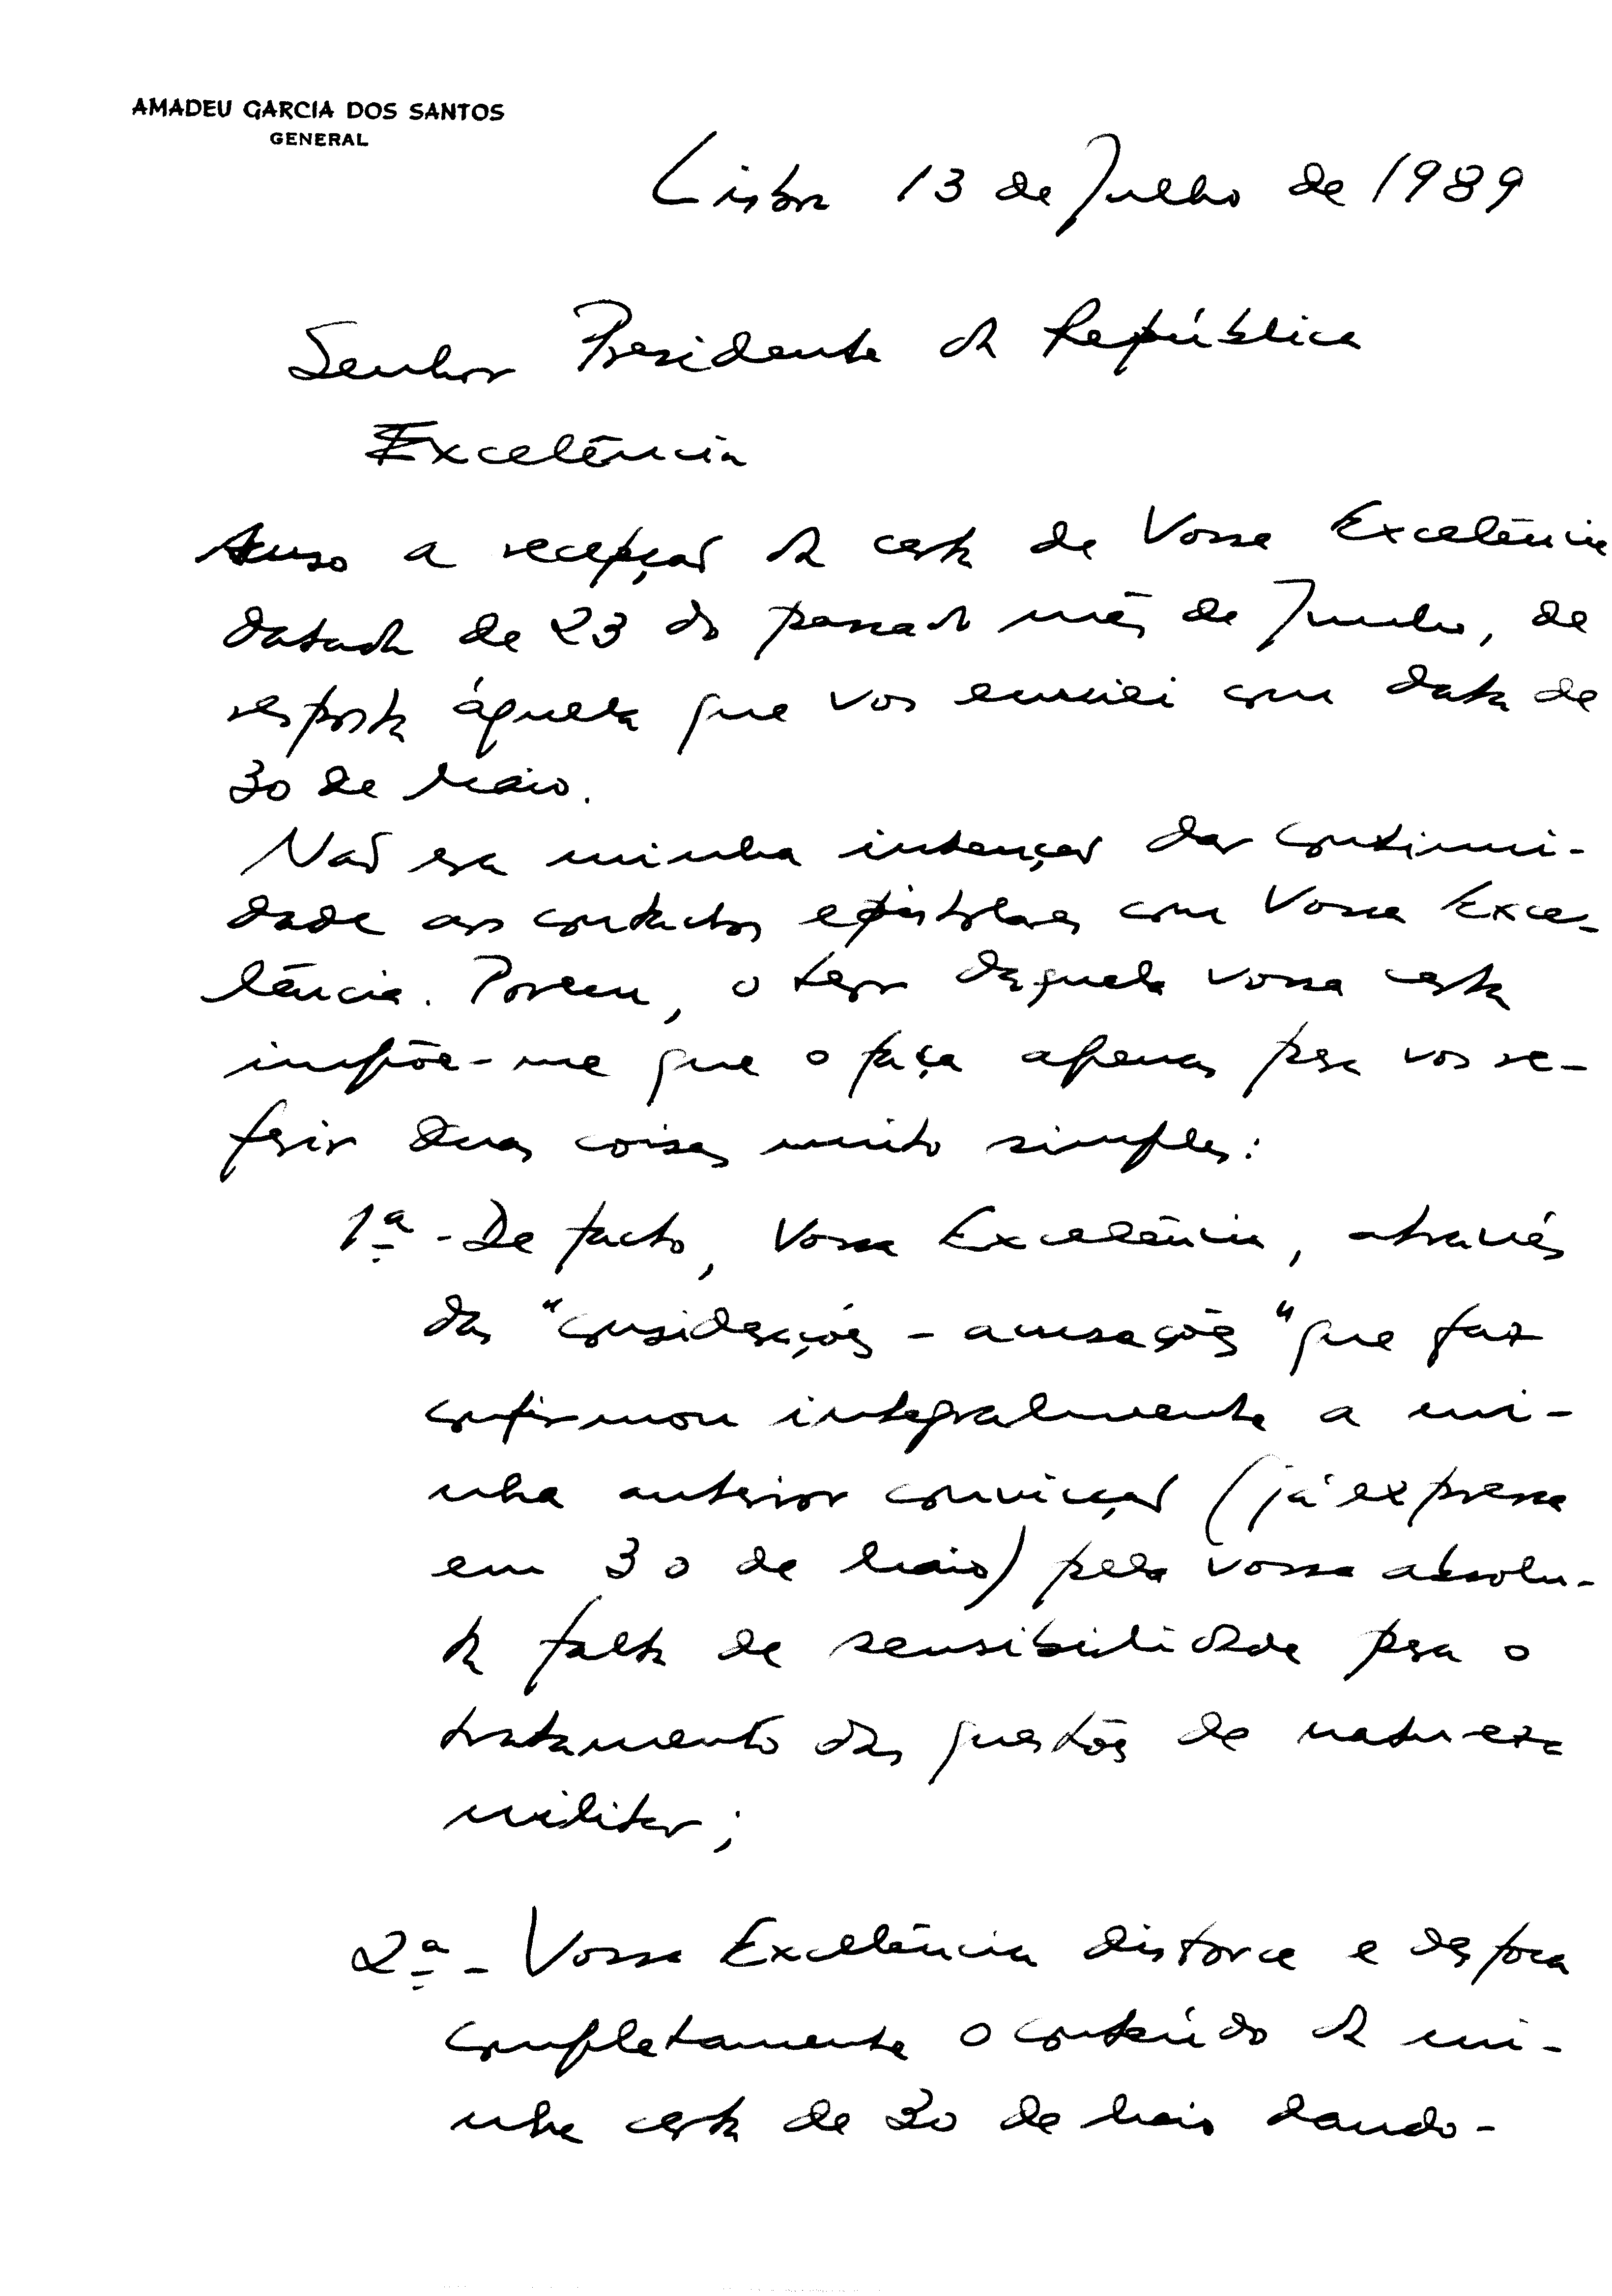 AMADEU GARCIA DOS SANTOS
GENERAL
Lisboa 13 de Julho de 1989
Senhor Presidente da República
Excelência
Acuso a recepção da carta de Vossa Excelência
datada de 23 do passado mês de Junho, de
resposta àquela que vos enviei com data de
30 de Maio.
Não era minha intenção dar continui-
dade aos contactos epistolares com Vossa Exce-
lência. Porem, o teor daquela vossa carta
impõe-me que o faça apenas para vos re-
ferir duas coisas muito simples:
1ª - De facto, Vossa Excelência, através
das "considerações - acusações" que faz
confirmou integralmente a mi-
nha anterior convicção (já expressa
em 30 de Maio) pela vossa absolu-
ta falta de sensibilidade para o
tratamento das questões de natureza
militar;
2ª - Vossa Excelência distorce e desfoca
completamente o conteúdo da mi-
nha carta de 30 de Maio dando-